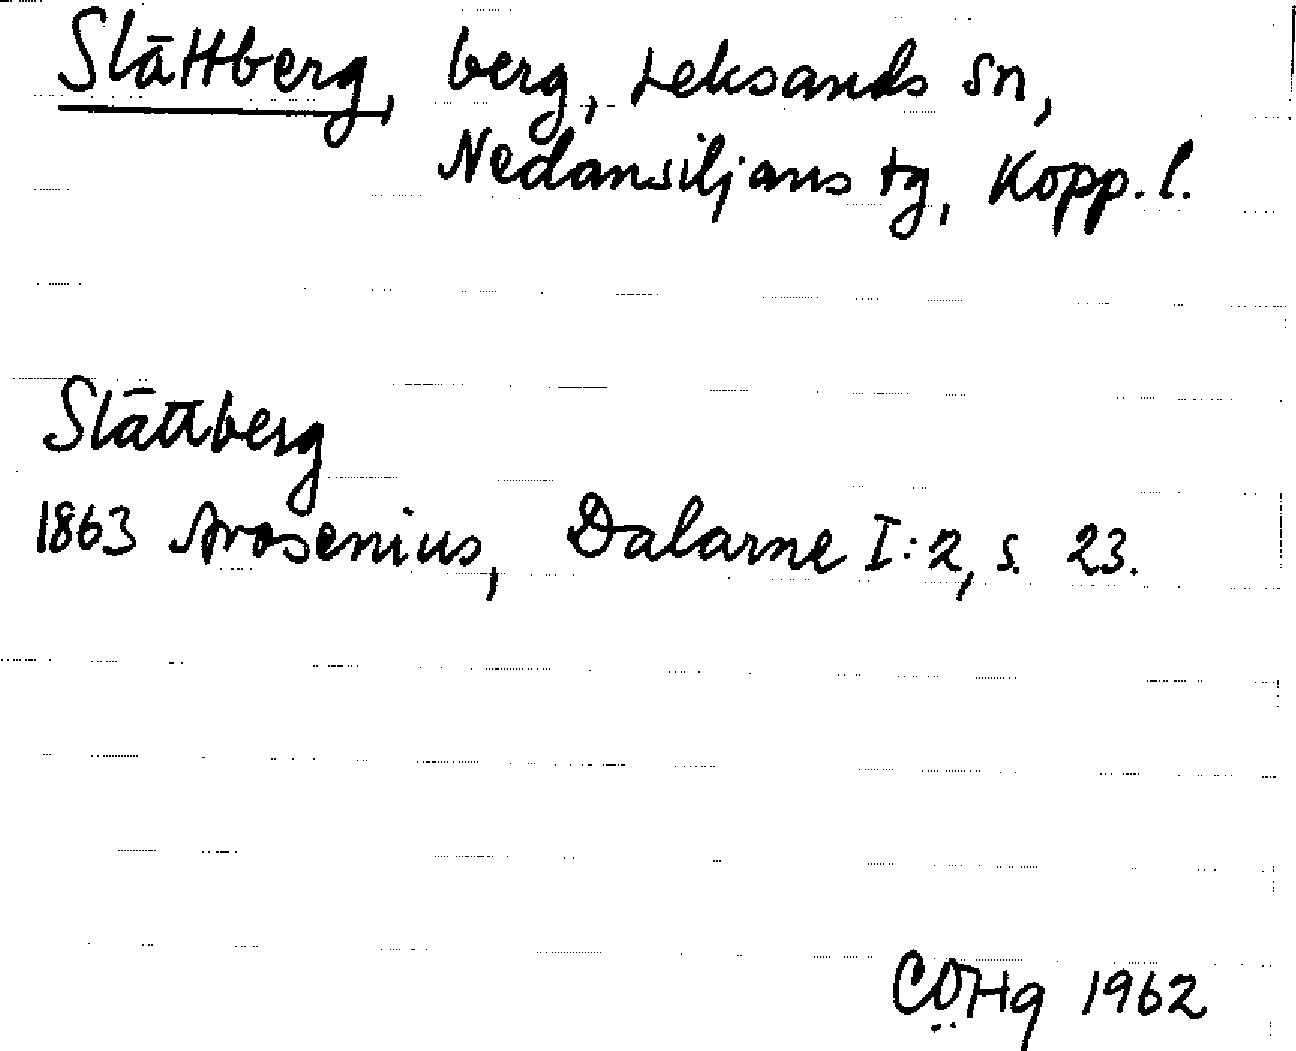 Slättberg, berg, Leksands sn,
Nedansiljans tg, Kopp. l.
Slättberg
1863 Arosenius, Dalarne I:2, s. 23.
CÖHg 1962